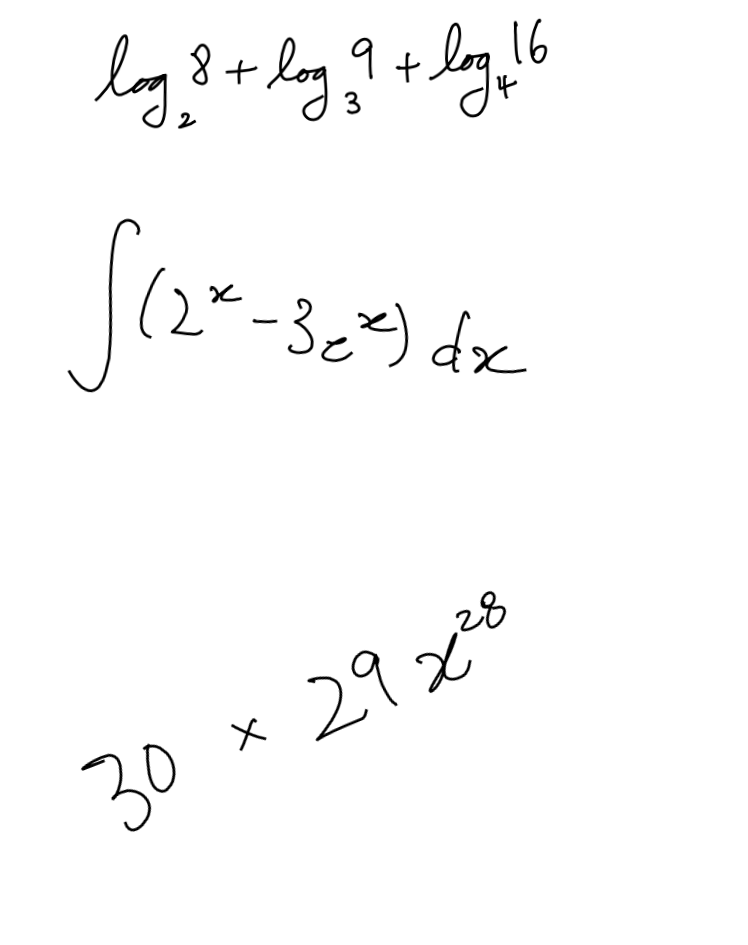 log₂8 + log₃9 + log₄16
∫(2ˣ - 3eˣ) dx
30 × 29 x²⁸